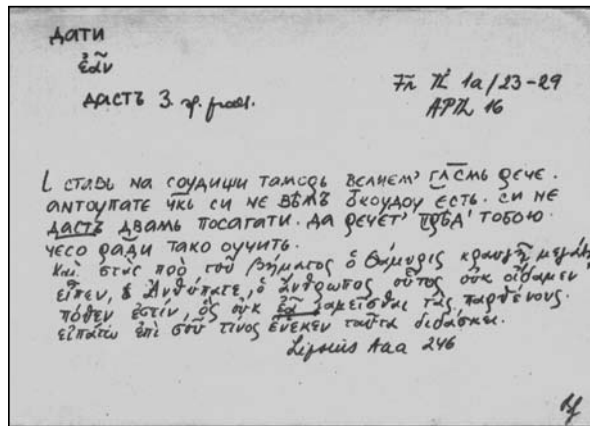 дати
ἐᾶν
дастъ 3. sp. praes.
1a/23-29
16
ставь на соудищи тамѳрь велием' гл҃смь рече.
антоупате чл҃кь си не вѣмъ ѿкоудоу есть. си не
дастъ двамь посагати. да речет' прѣд' тобою.
чесо ради тако оучить.
Καὶ στὰς πρὸ τοῦ βήματος ὁ Θάμυρις κραυγῇ μεγάλῃ
εἶπεν, Ἀνθύπατε, ὁ ἄνθρωπος οὗτος οὐκ οἴδαμεν
πόθεν ἐστίν, ὃς οὐκ ἐᾷ γαμεῖσθαι τὰς παρθένους.
εἰπάτω ἐπὶ σοῦ τίνος ἕνεκεν ταῦτα διδάσκει.
Lipsius Aaa 246